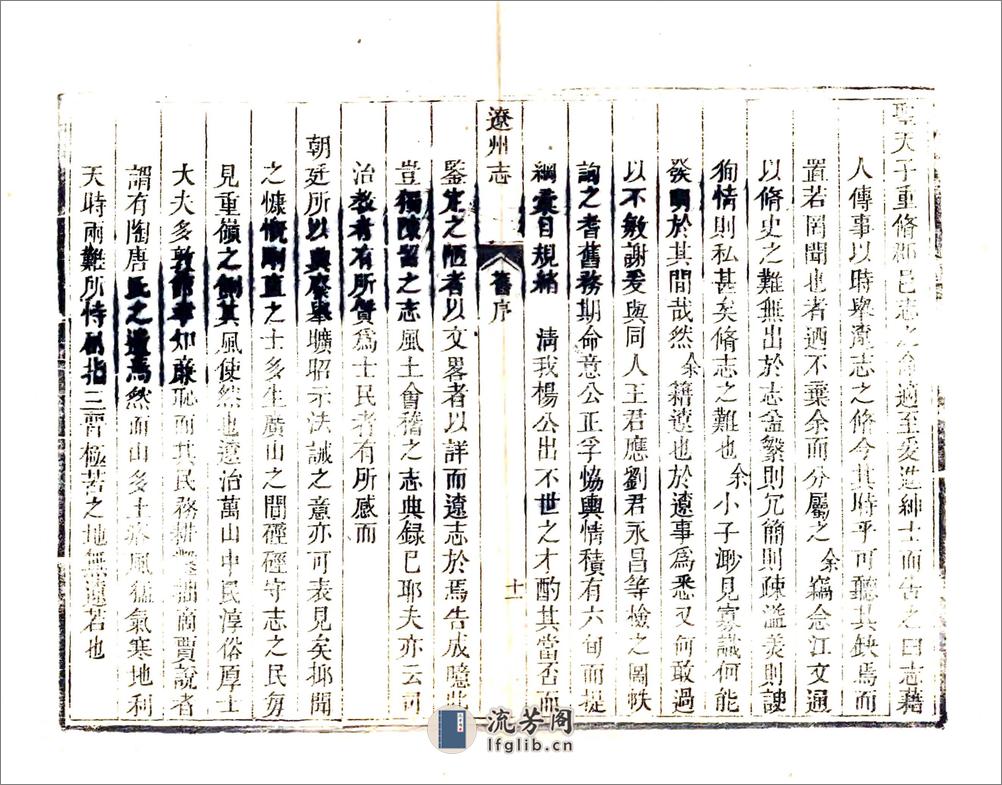 聖天子重脩郡邑志之命適至爰進紳士而告之曰志藉
人傳事以時舉遼志之脩今其時乎可聽其缺焉而
置若罔聞也者迺不棄余而分屬之余竊念江文通
以脩史之難無出於志盖繁則冗簡則疎濫美則諛
徇情則私甚矣脩志之難也余小子渺見寡識何能
發明於其間哉然余籍遼也於遼事為悉又何敢過
以不敏謝爰與同人王君應劉君永昌等檢之圖帙
詢之耆舊務期命意公正孚恊輿情積有六旬而提
綱彙目規稍 清我楊公出不世之才酌其當否而
遼州志 舊序 十一
鑒定之陋者以文畧者以詳而遼志於焉告成隐此
豈獨陳留之志風土會稽之志典録已耶夫亦云司
治教者有所賛為士民者有所感而
朝廷所以興廢舉墜昭示法誡之意亦可表見矣抑聞
之慷慨剛直之士多生廣山之間硜硜守志之民每
見重嶺之側其風使然也遼治萬山中民淳俗厚士
大夫多敦節孝知廉恥而其民務耕鑿詘商賈說者
謂有陶唐氏之遺焉然而山多土瘠風猛氣寒地利
天時兩難所恃 三晋極苦之地無遼若也
流芳阁
lfglib.cn